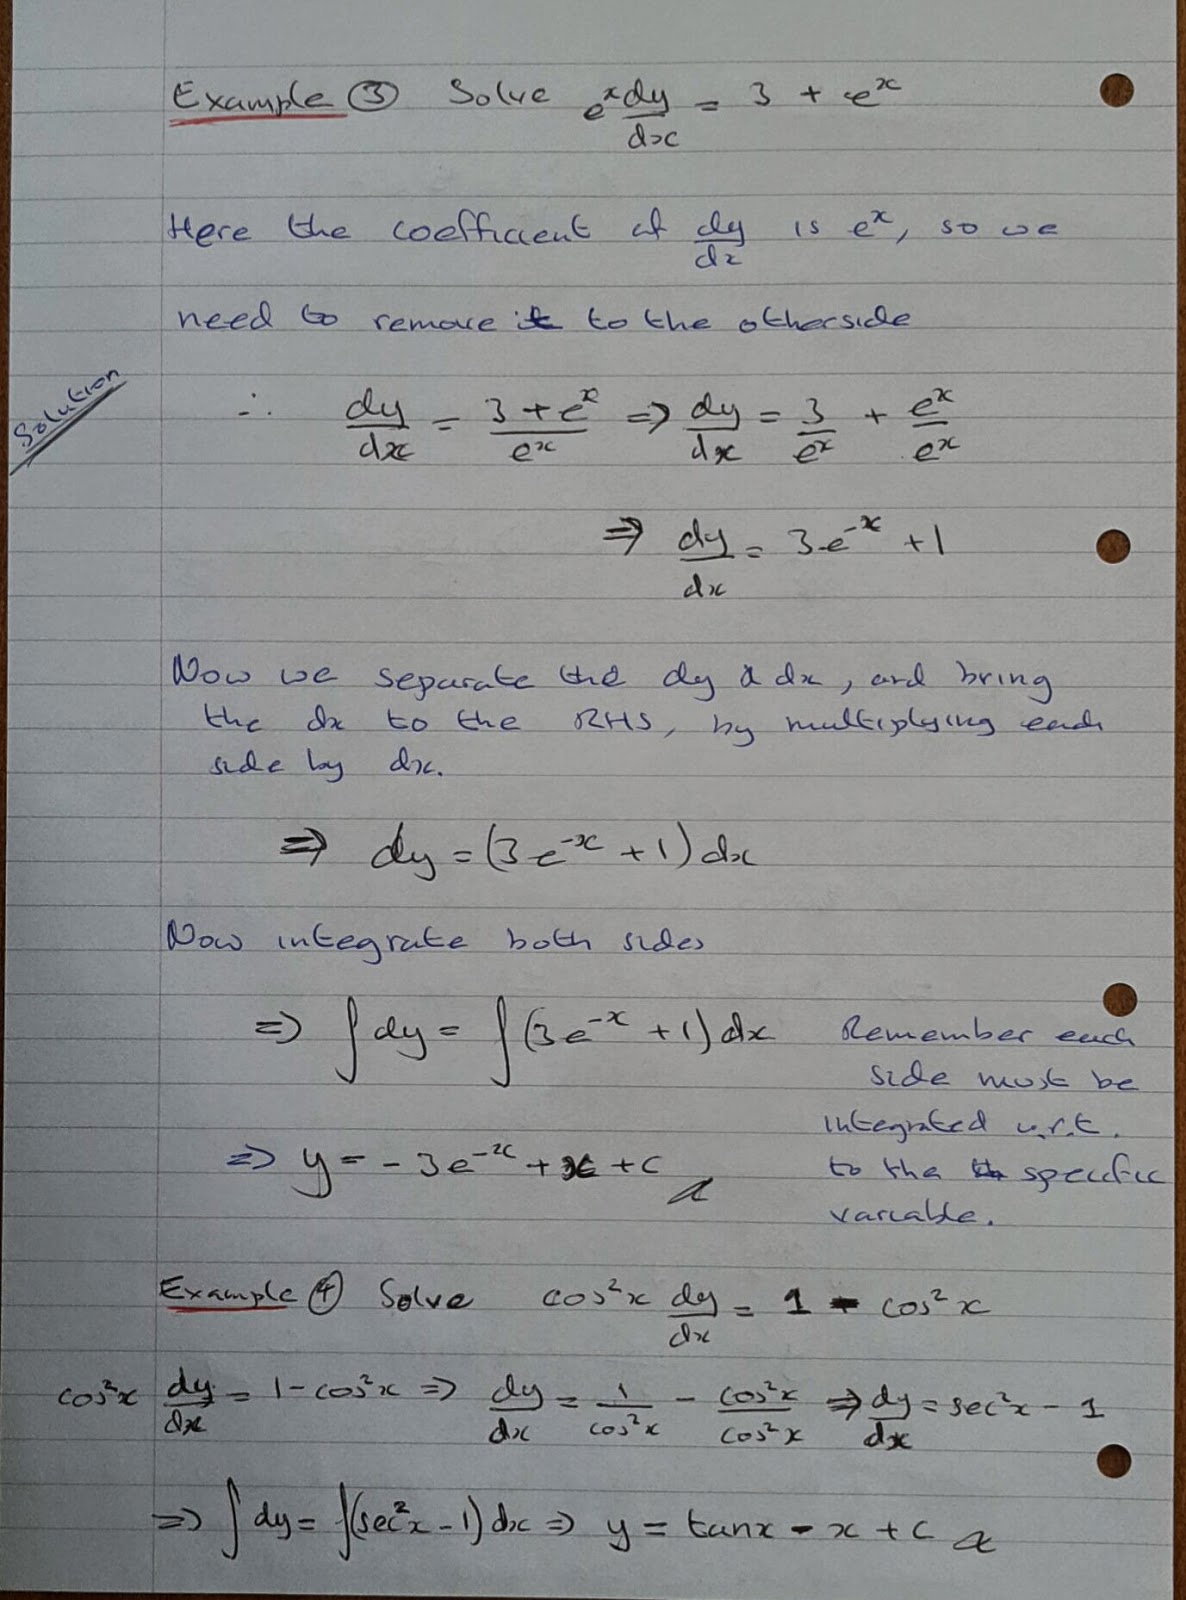 Example ③ Solve e^x dy/dx = 3 + e^x
Here the coefficient of dy/dx is e^x, so we
need to remove it to the otherside
Solution
∴ dy/dx = (3 + e^x)/e^x ⇒ dy/dx = 3/e^x + e^x/e^x
⇒ dy/dx = 3e^-x + 1
Now we separate the dy & dx, and bring
the dx to the RHS, by multiplying each
side by dx.
⇒ dy = (3e^-x + 1) dx
Now integrate both sides
⇒ ∫ dy = ∫ (3e^-x + 1) dx Remember each
side must be
integrated w.r.t.
⇒ y = - 3e^-x + x + c to the specific
variable.
Example ④ Solve cos²x dy/dx = 1 - cos²x
cos²x dy/dx = 1 - cos²x ⇒ dy/dx = 1/cos²x - cos²x/cos²x ⇒ dy/dx = sec²x - 1
⇒ ∫ dy = ∫(sec²x - 1) dx ⇒ y = tanx - x + c